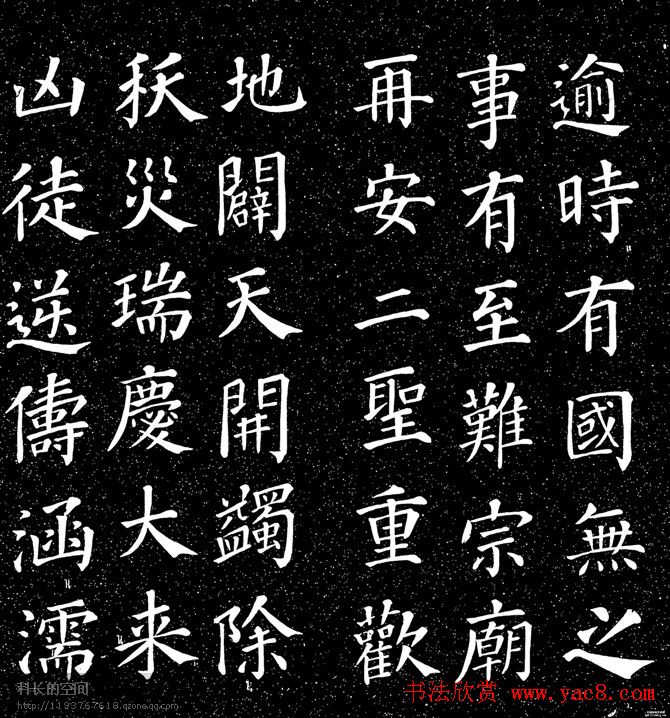 逾時有國無之
事有至難宗廟
再安二聖重歡
地闢天開蠲除
祅災瑞慶大来
凶徒逆儔涵濡
科长的空间
http://1193767618.qzone.qq.com
书法欣赏 www.yac8.com